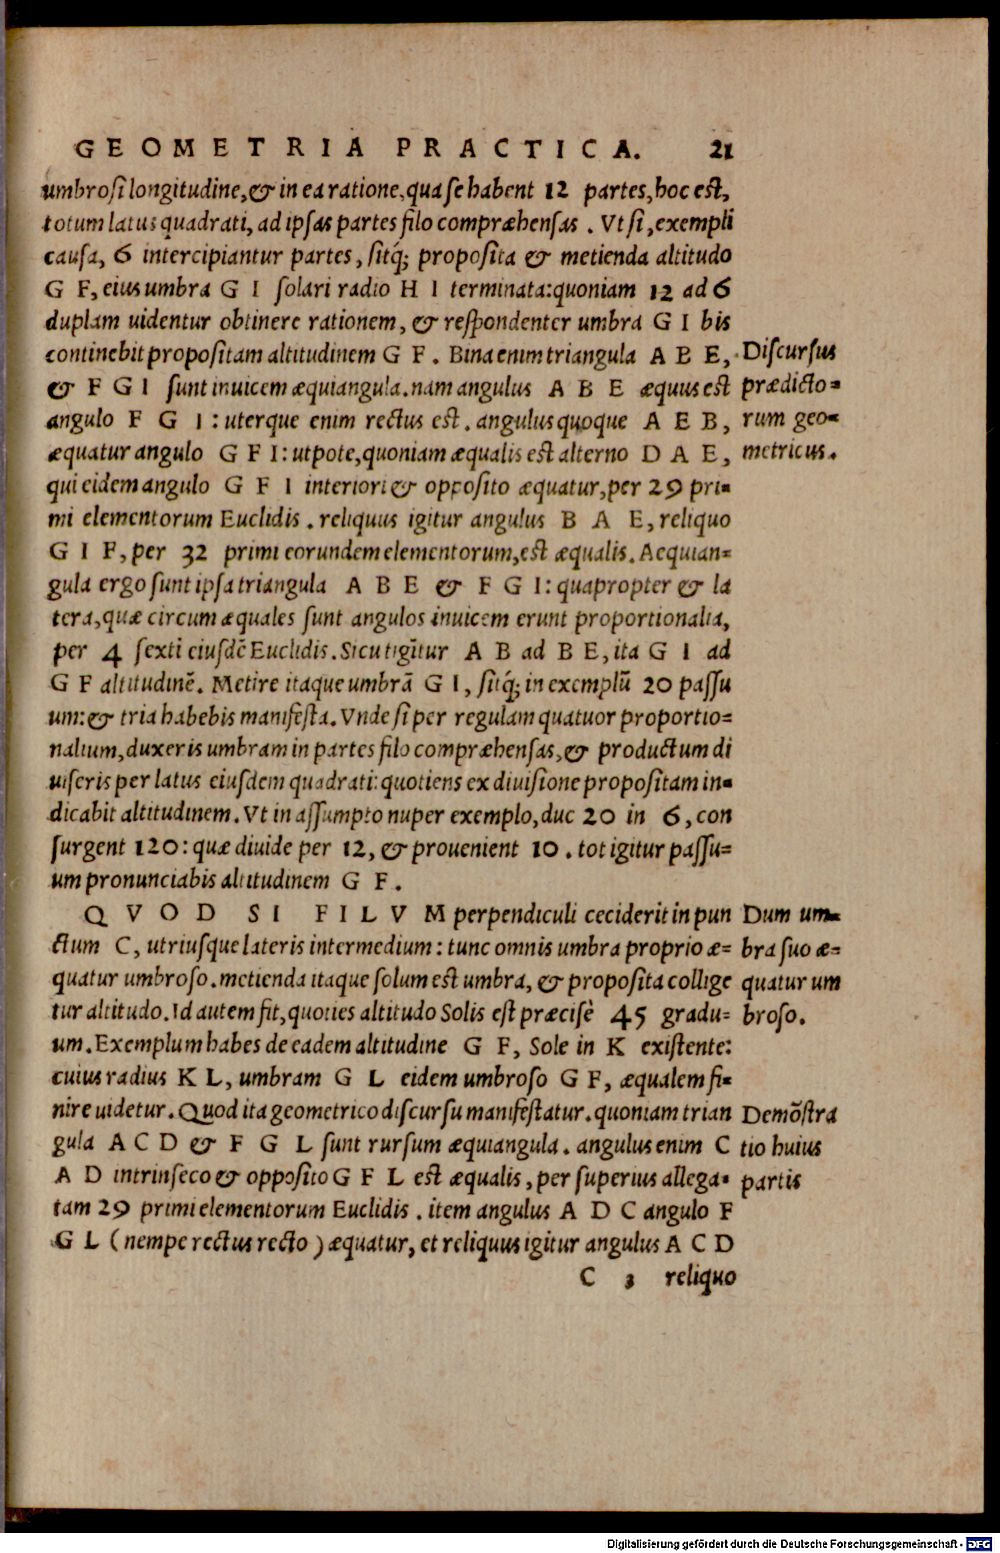 GEOMETRIA PRACTICA. 21
umbrosi longitudine, & in ea ratione, qua se habent 12 partes, hoc est,
totum latus quadrati, ad ipsas partes filo compræhensas. Vt si, exempli
causa, 6 intercipiantur partes, sitq́; proposita & metienda altitudo
G F, eius umbra G I solari radio H I terminata: quoniam 12 ad 6
duplam uidentur obtinere rationem, & respondenter umbra G I bis
continebit propositam altitudinem G F. Bina enim triangula A B E,
& F G I sunt inuicem æquiangula. nam angulus A B E æquus est
angulo F G I: uterque enim rectus est. angulus quoque A E B,
æquatur angulo G F I: utpote, quoniam æqualis est alterno D A E,
qui eidem angulo G F I interiori & opposito æquatur, per 29 pri-
mi elementorum Euclidis. reliquus igitur angulus B A E, reliquo
G I F, per 32 primi eorundem elementorum, est æqualis. Aequian-
gula ergo sunt ipsa triangula A B E & F G I: quapropter & la
tera, quæ circum æquales sunt angulos inuicem erunt proportionalia,
per 4 sexti eiusdē Euclidis. Sicut igītur A B ad B E, ita G I ad
G F altitudinē. Metire itaque umbrā G I, sitq́; in exemplū 20 passu
um: & tria habebis manifesta. Vnde si per regulam quatuor proportio-
nalium, duxeris umbram in partes filo compræhensas, & productum di
uiseris per latus eiusdem quadrati: quotiens ex diuisione propositam in-
dicabit altitudinem. Vt in assumpto nuper exemplo, duc 20 in 6, con
surgent 120: quæ diuide per 12, & prouenient 10. tot igitur passu-
um pronunciabis altitudinem G F.
QVOD SI FILVM perpendiculi ceciderit in pun
ctum C, utriusque lateris intermedium: tunc omnis umbra proprio æ-
quatur umbroso. metienda itaque solum est umbra, & proposita collige
tur altitudo. Id autem fit, quoties altitudo Solis est præcisè 45 gradu-
um. Exemplum habes de eadem altitudine G F, Sole in K existente:
cuius radius K L, umbram G L eidem umbroso G F, æqualem fi-
nire uidetur. Quod ita geometrico discursu manifestatur. quoniam trian
gula A C D & F G L sunt rursum æquiangula. angulus enim C
A D intrinseco & opposito G F L est æqualis, per superius allega-
tam 29 primi elementorum Euclidis. item angulus A D C angulo F
G L (nempe rectus recto) æquatur, et reliquus igitur angulus A C D
C 3 reliquo
Discursus
prædicto-
rum geo-
metricus.
Dum um-
bra suo æ-
quatur um
broso.
Demōstra
tio huius
partis
Digitalisierung gefördert durch die Deutsche Forschungsgemeinschaft - DFG